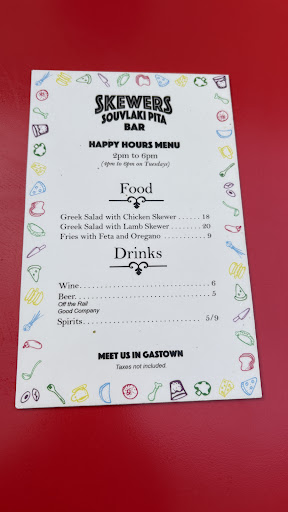 SKEWERS
SOUVLAKI PITA
BAR
HAPPY HOURS MENU
2pm to 6pm
(4pm to 6pm on Tuesdays)
Food
Greek Salad with Chicken Skewer ...... 18
Greek Salad with Lamb Skewer ......... 20
Fries with Feta and Oregano ............ 9
Drinks
Wine.................................... 6
Beer.................................... 5
Off the Rail
Good Company
Spirits............................... 5/9
MEET US IN GASTOWN
Taxes not included.